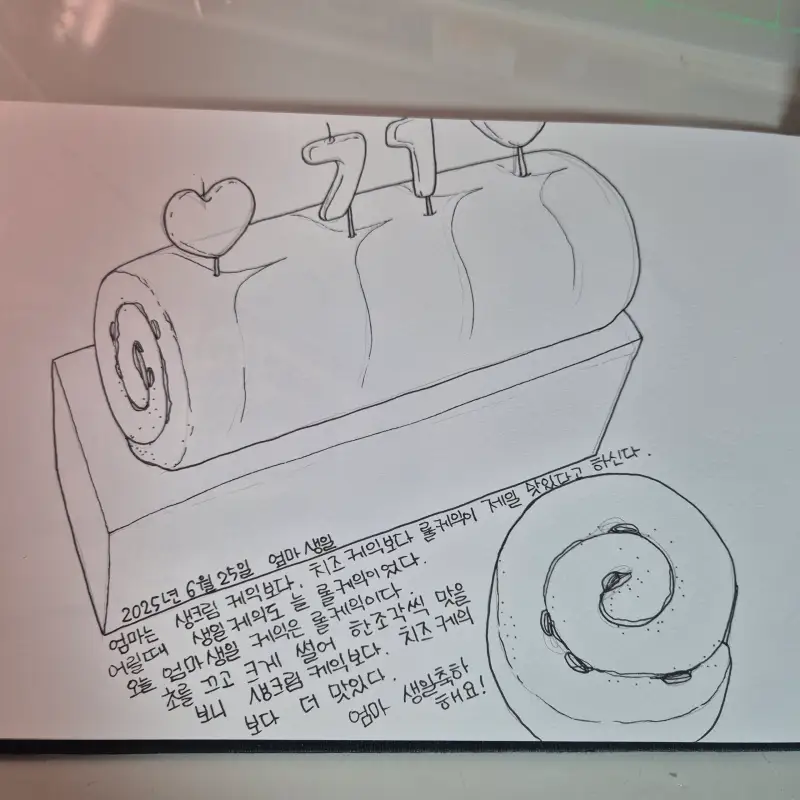 71
2025년 6월 25일 엄마 생일
엄마는 생크림 케익보다. 치즈케익보다 롤케익이 제일 맛있다고 하신다.
어릴때 생일케익도 늘 롤케익이었다.
오늘 엄마생일 케익은 롤케익이다.
초를 끄고 크게 썰어 한조각씩 맛을
보니 생크림케익보다. 치즈케익
보다 더 맛있다.
엄마 생일축하
해요!